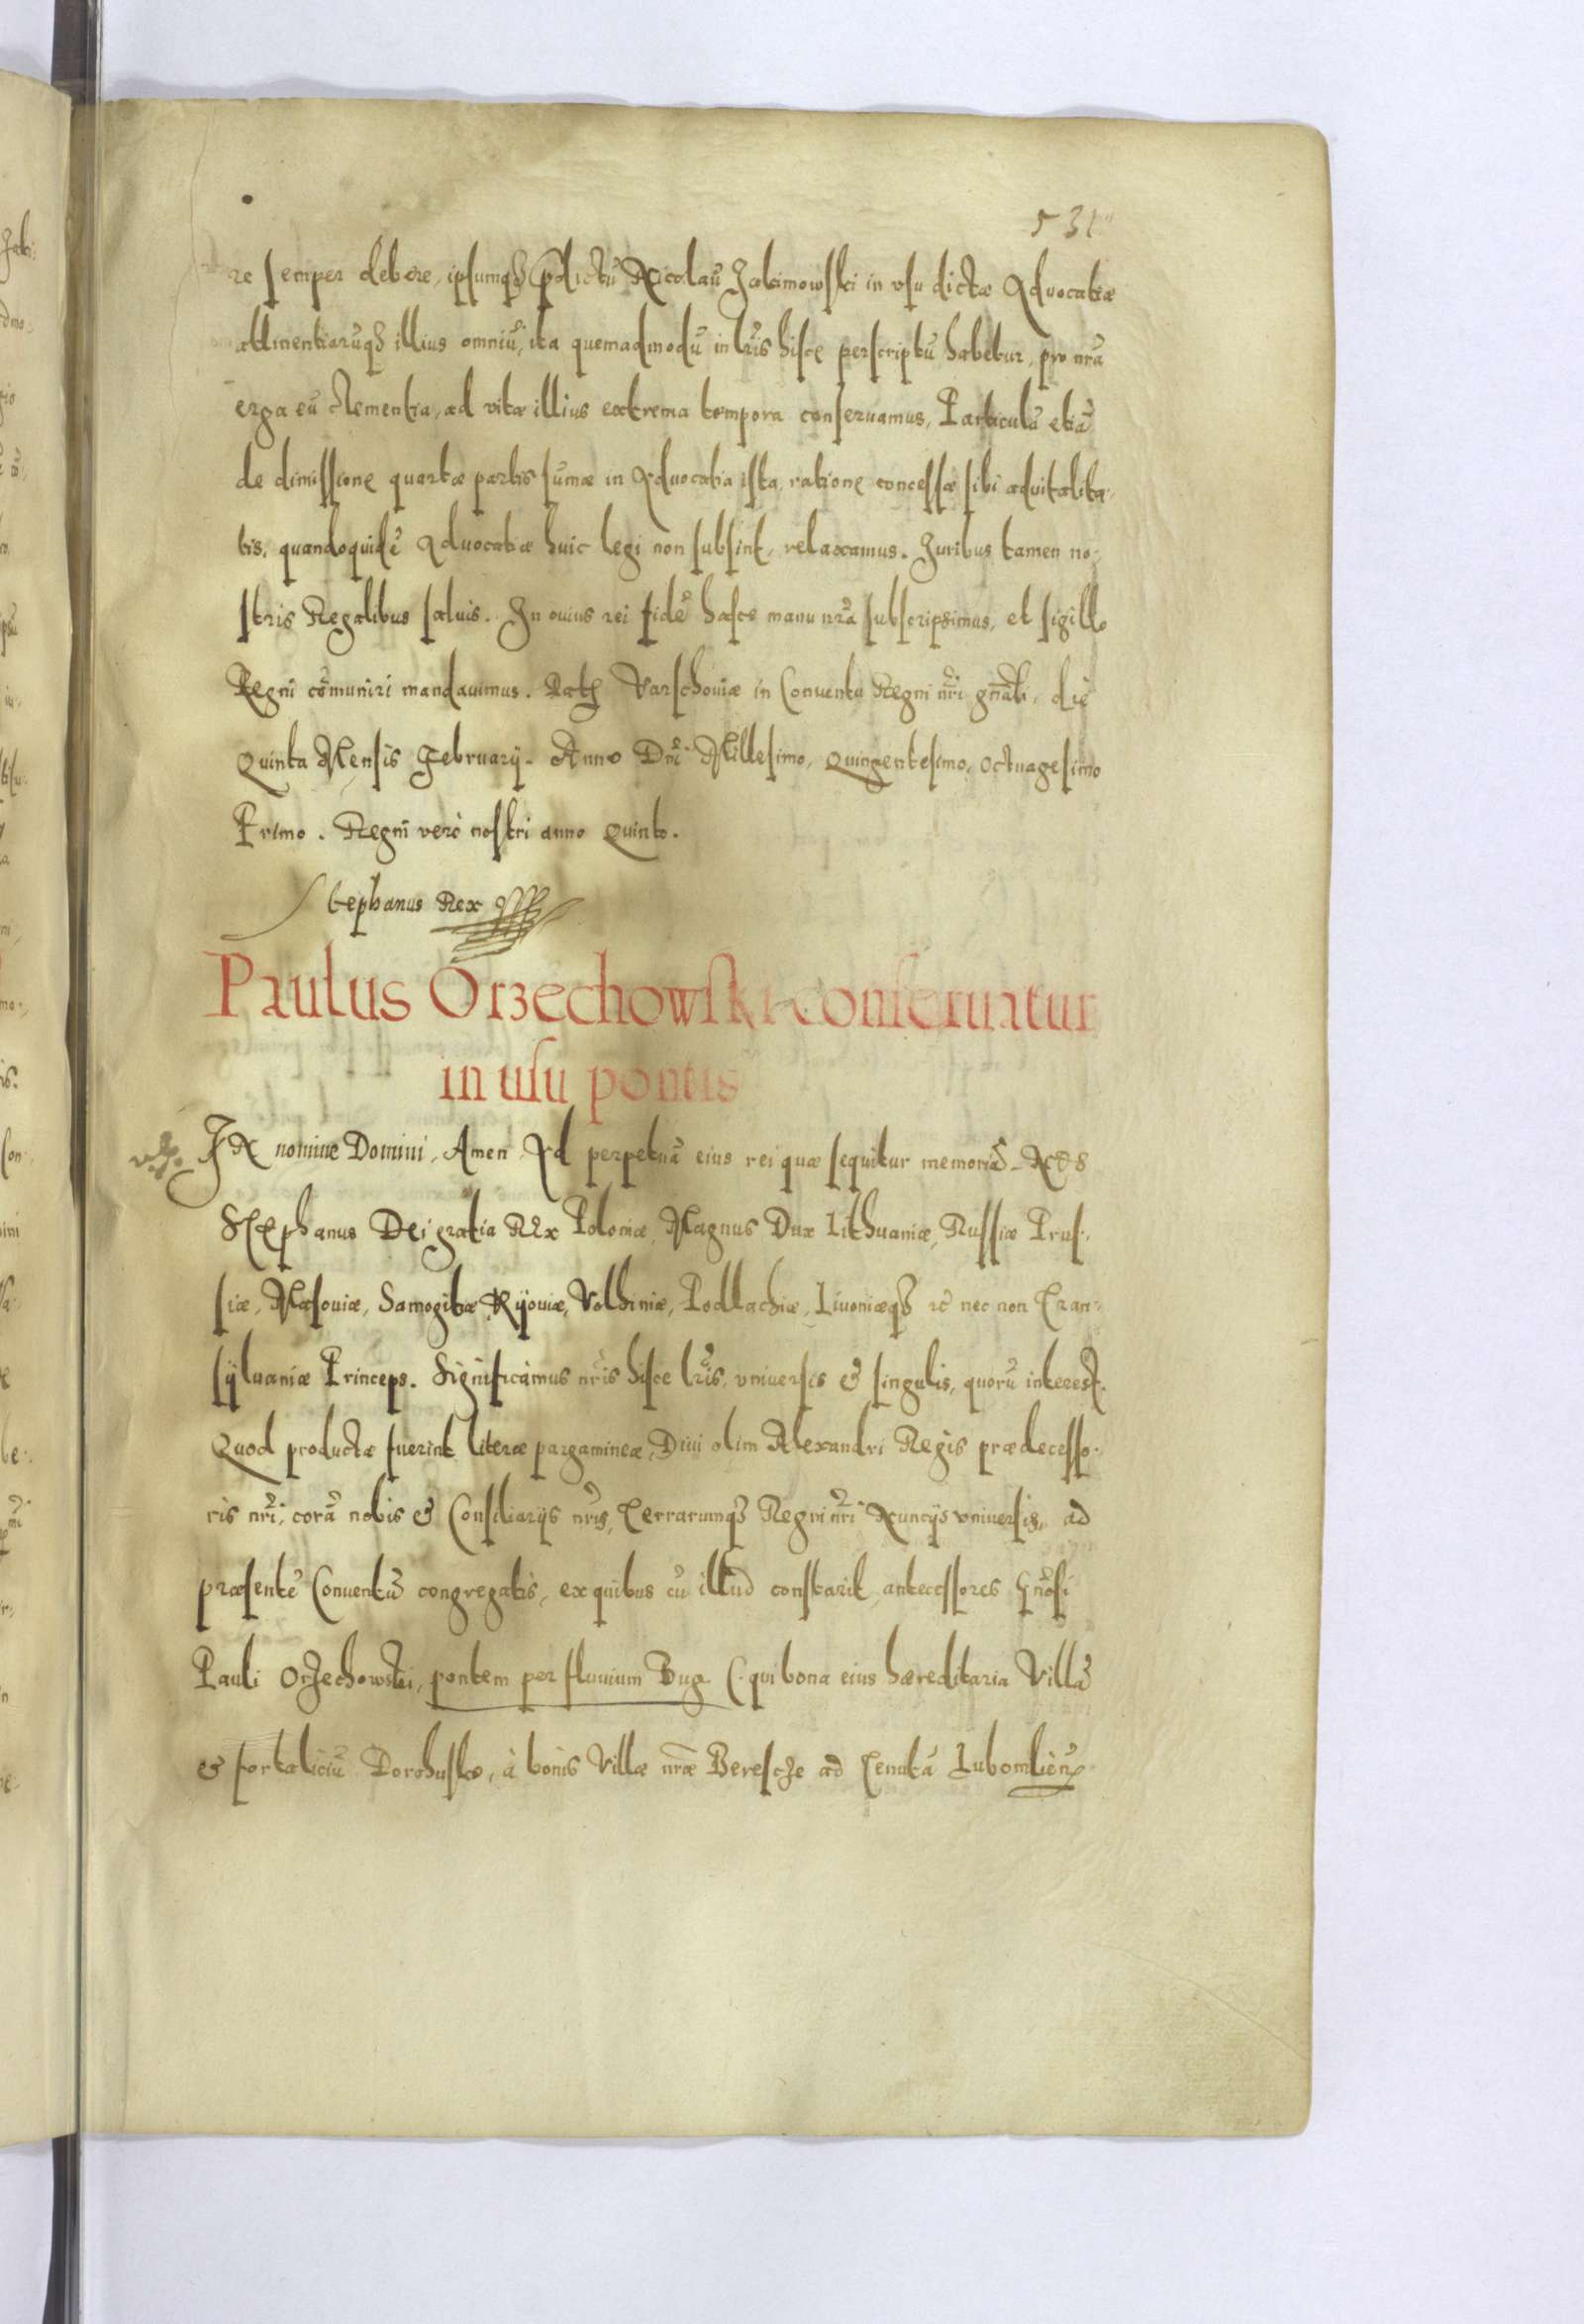 531
re semper debere, ipsumq₃ p̄dictū Nicolaū Jakimowski in vsu dictæ Aduocatiæ
attinentiarūq₃ illius omniū, ita quemadmodū in lr̄is hisce perscriptū habetur, pro nr̄a
erga eū clementia, ad vitæ illius extrema tempora conseruamus, Particulā etiā
de dimissione quartæ partis sūmæ in Aduocatia ista, ratione concessæ sibi aduitalita-
tis, quandoquidē Aduocatiæ huic legi non subsint, relaxamus. Juribus tamen no-
stris Regalibus saluis. In cuius rei fidē hasce manu nr̄a subscripsimus, et sigillo
Regni cōmuniri mandauimus. Dat Varschouiæ in Conuentu Regni nr̄i gn̄ali, die
Quinta Mensis February. Anno Dn̄i Millesimo, Quingentesimo, Octuagesimo
Primo. Regni verò nostri anno Quinto.
Stephanus Rex
Paulus Orzechowski conseruatur
in usu pontis
IN nomine Domini, Amen. Ad perpetuā eius rei quæ sequitur memoriā. NOS
STephanus Dei gratia REx Poloniæ, Magnus Dux Lithuaniæ, Russiæ Prus-
siæ, Masouiæ, Samogitiæ, Kijouiæ, Volhiniæ, Podlachiæ, Liuoniæq₃ ec̄ nec non Tran-
syluaniæ Princeps. Significamus nr̄is hisce lr̄is, vniuersis & singulis, quorū interest.
Quod productæ fuerint literæ pargamineæ, Diui olim Alexandri Regis prædecesso-
ris nr̄i, corā nobis & Consiliarijs nr̄is, Terrarumq₃ Regni nr̄i Nuncijs vniuersis, ad
præsentē Conuentū congregatis, ex quibus cū illud constarit, antecessores Gn̄osi
Pauli Orzechowski, pontem per fluuium Bug (qui bona eius hæreditaria Villā
& fortaliciū Dorohusko, à bonis Villæ nr̄æ Beresche ad Tenutā Lubomlien̄